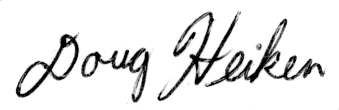 Doug Heiken